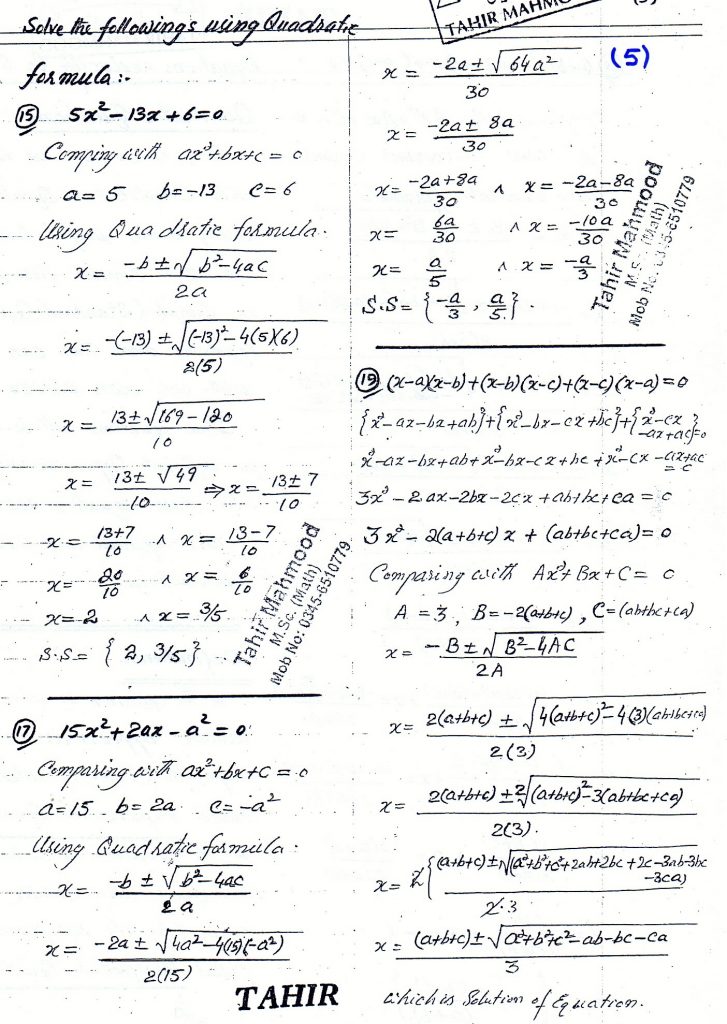 Solve the followings using Quadratic
formula:-
(15) 5x² - 13x + 6 = 0
Comping with ax² + bx + c = 0
a = 5 b = -13 c = 6
Using Quadratic formula.
x = (-b ± √(b² - 4ac)) / 2a
x = (-(-13) ± √((-13)² - 4(5)(6))) / 2(5)
x = (13 ± √(169 - 120)) / 10
x = (13 ± √49) / 10 ⇒ x = (13 ± 7) / 10
x = (13+7)/10 ∧ x = (13-7)/10
x = 20/10 ∧ x = 6/10
x = 2 ∧ x = 3/5
S.S = {2, 3/5}
Tahir Mahmood
M.Sc. (Math)
Mob No: 0345-6510779
(17) 15x² + 2ax - a² = 0
Comparing with ax² + bx + c = 0
a = 15 b = 2a c = -a²
Using Quadratic formula.
x = (-b ± √(b² - 4ac)) / 2a
x = (-2a ± √(4a² - 4(15)(-a²))) / 2(15)
TAHIR
TAHIR MAHMO
(5)
x = (-2a ± √(64a²)) / 30
x = (-2a ± 8a) / 30
x = (-2a+8a)/30 ∧ x = (-2a-8a)/30
x = 6a/30 ∧ x = -10a/30
x = a/5 ∧ x = -a/3
S.S = {-a/3, a/5}.
Tahir Mahmood
M.Sc. (Math)
Mob No: 0345-6510779
(19) (x-a)(x-b)+(x-b)(x-c)+(x-c)(x-a) = 0
{x²-ax-bx+ab}+{x²-bx-cx+bc}+{x²-cx
-ax+ac}=0
x²-ax-bx+ab+x²-bx-cx+bc+x²-cx-ax+ac
= 0
3x² - 2ax - 2bx - 2cx + ab+bc+ca = 0
3x² - 2(a+b+c)x + (ab+bc+ca) = 0
Comparing with Ax² + Bx + C = 0
A = 3, B = -2(a+b+c), C = (ab+bc+ca)
x = (-B ± √(B² - 4AC)) / 2A
x = (2(a+b+c) ± √(4(a+b+c)² - 4(3)(ab+bc+ca))) / 2(3)
x = (2(a+b+c) ± 2√((a+b+c)² - 3(ab+bc+ca))) / 2(3).
x = 2{(a+b+c) ± √(a²+b²+c²+2ab+2bc+2c-3ab-3bc
-3ca)} / 2·3
x = ((a+b+c) ± √(a²+b²+c²-ab-bc-ca)) / 3
which is Solution of Equation.